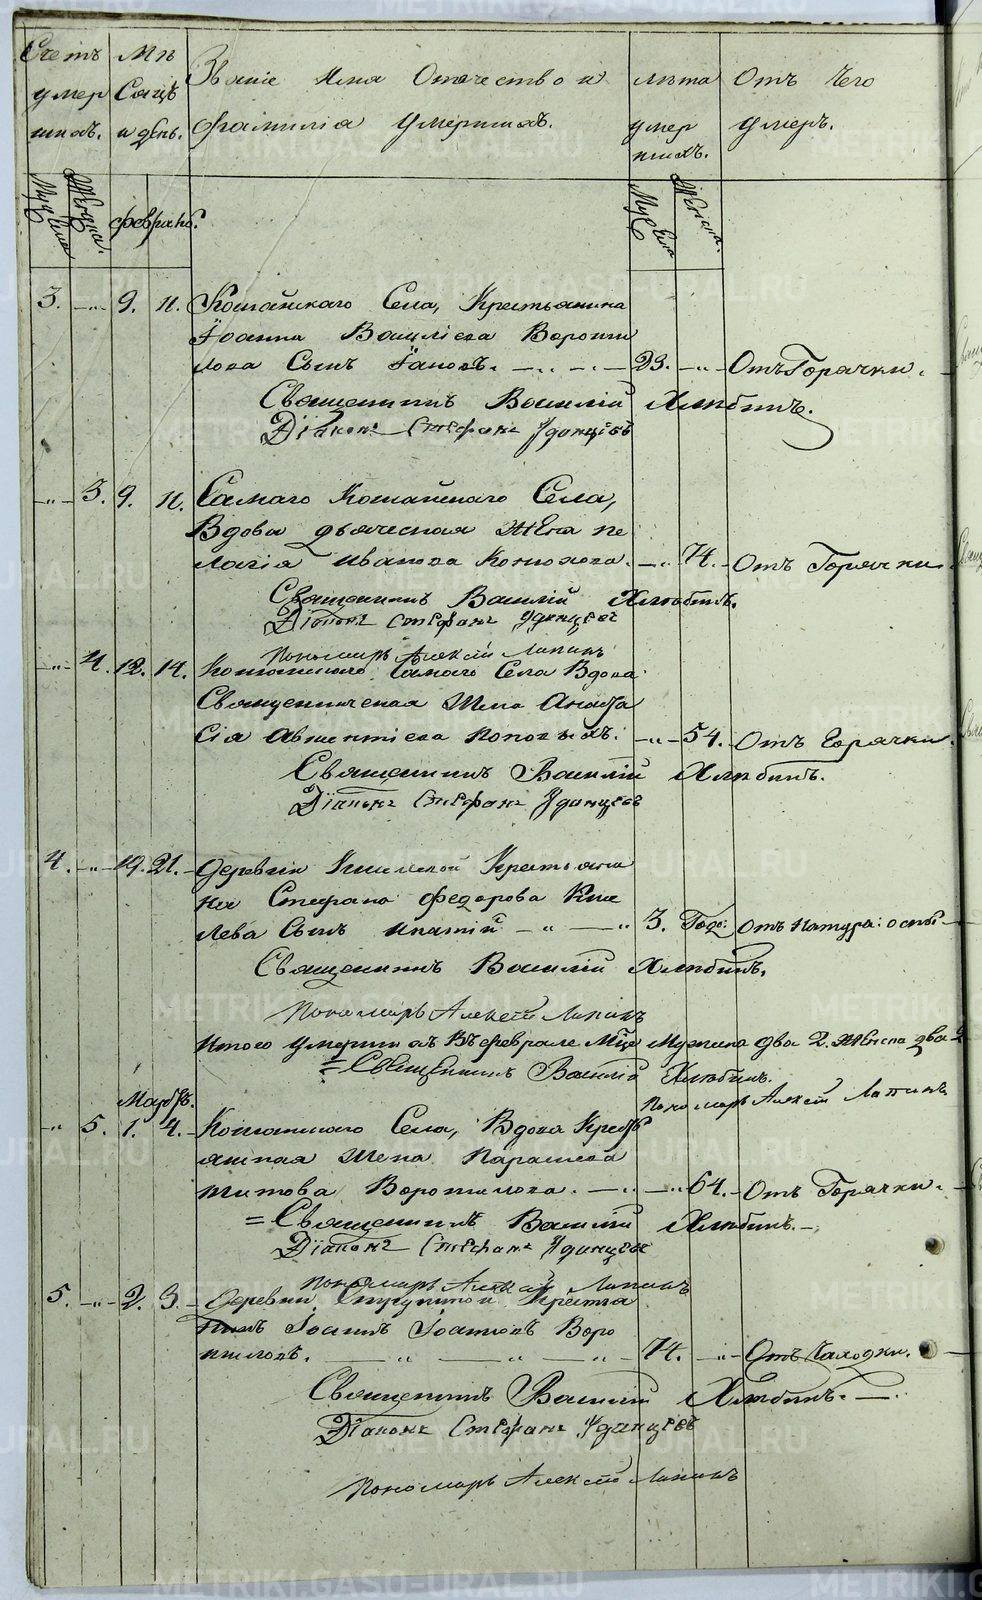 Счетъ умер шихъ.
Мѣ Сяцъ и день.
Званіе Имя Отечество и фамилія Умершихъ.
лѣта умер шихъ.
Отъ Чего Умеръ.
Муж Еска
Женска.
Февраль.
Муж Еска
Женска.
3. —„— 9. 11. Кошайскаго Села, Крестьянина
Іоанна Василіева Вороши
лова Сынъ Іаковъ. —„—„— 23. —„— Отъ Горячки.
Священникъ Василій Хлюбинъ.
Діаконъ Стефанъ Удинцовъ
—„— 3. 9. 11. Самаго Кошайскаго Села,
Вдова дьяческая Жена Пе
лагія Иванова Конюхова. —„— 74. Отъ Горячки.
Священникъ Василій Хлюбинъ.
Діаконъ Стефанъ Удинцовъ
Пономарь Алексій Лапинъ
—„— 4. 12. 14. Кошайскаго Самаго Села Вдова
Священническая Жена Анаста
сія Авксентіева Поповыхъ. —„— 54. Отъ Горячки.
Священникъ Василій Хлюбинъ.
Діаконъ Стефанъ Удинцовъ
4. —„— 19. 21. Деревни Киселевой Крестьяни
на Стефана Федорова Кисе
лева Сынъ Ипатій —„—„ 3. Годо: Отъ Натура: оспы.
Священникъ Василій Хлюбинъ.
Пономарь Алексій Лапинъ
Итого Умершихъ Въ феврале Мцѣ Мужеска два 2. Женска два 2
= Священникъ Василій Хлюбинъ.
Пономарь Алексій Лапинъ
Мартъ.
„ 5. 1. 4. Кошайскаго Села, Вдова Крест
янская Жена Параскева
Титова Ворошилова. —„— „ 64. Отъ Горячки.
= Священникъ Василій Хлюбинъ.
Діаконъ Стефанъ Удинцовъ
Пономарь Алексій Лапинъ
5. —„— 2. 3. Деревни Крестья
нинъ Іоаннъ Іоанновъ Воро
шиловъ. —„—„—„— 74. —„— Отъ Чахотки.
Священникъ Василій Хлюбинъ.
Діаконъ Стефанъ Удинцовъ
Пономарь Алексій Лапинъ
METRIKI.GASO-URAL.RU